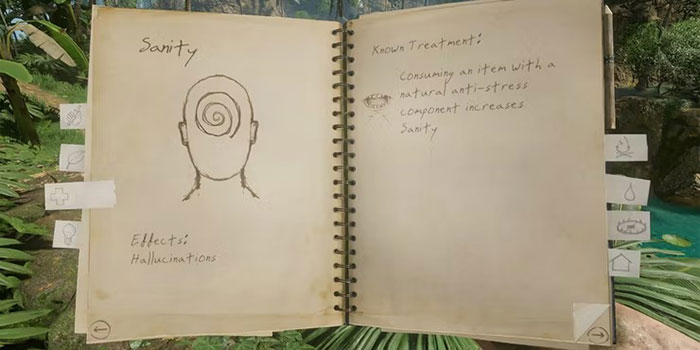 Sanity
Effects:
Hallucinations
Known Treatment:
Consuming an item with a
natural anti-stress
component increases
Sanity